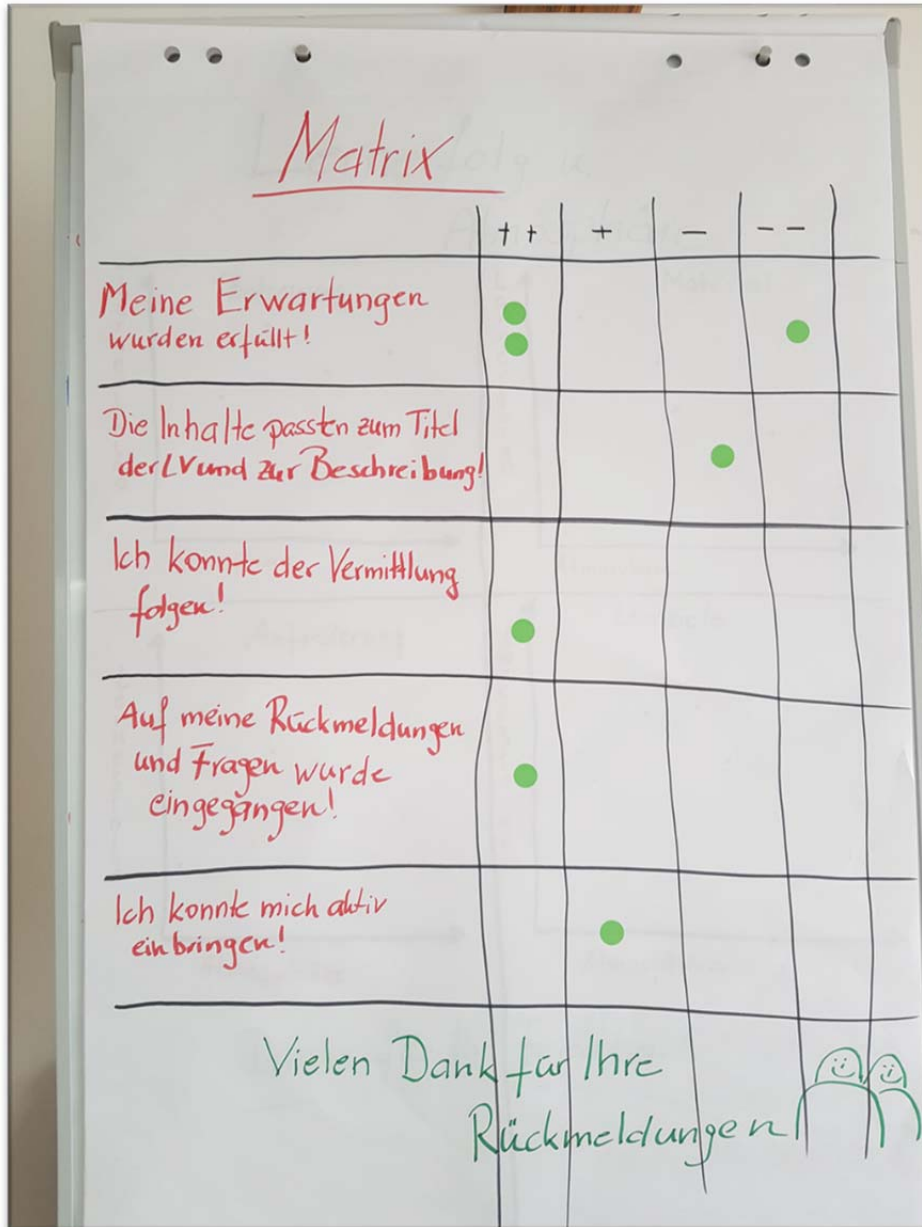 Matrix
++ + - --
Meine Erwartungen
wurden erfüllt!
Die Inhalte passten zum Titel
der LV und zur Beschreibung!
Ich konnte der Vermittlung
folgen!
Auf meine Rückmeldungen
und Fragen wurde
eingegangen!
Ich konnte mich aktiv
einbringen!
Vielen Dank für Ihre
Rückmeldungen